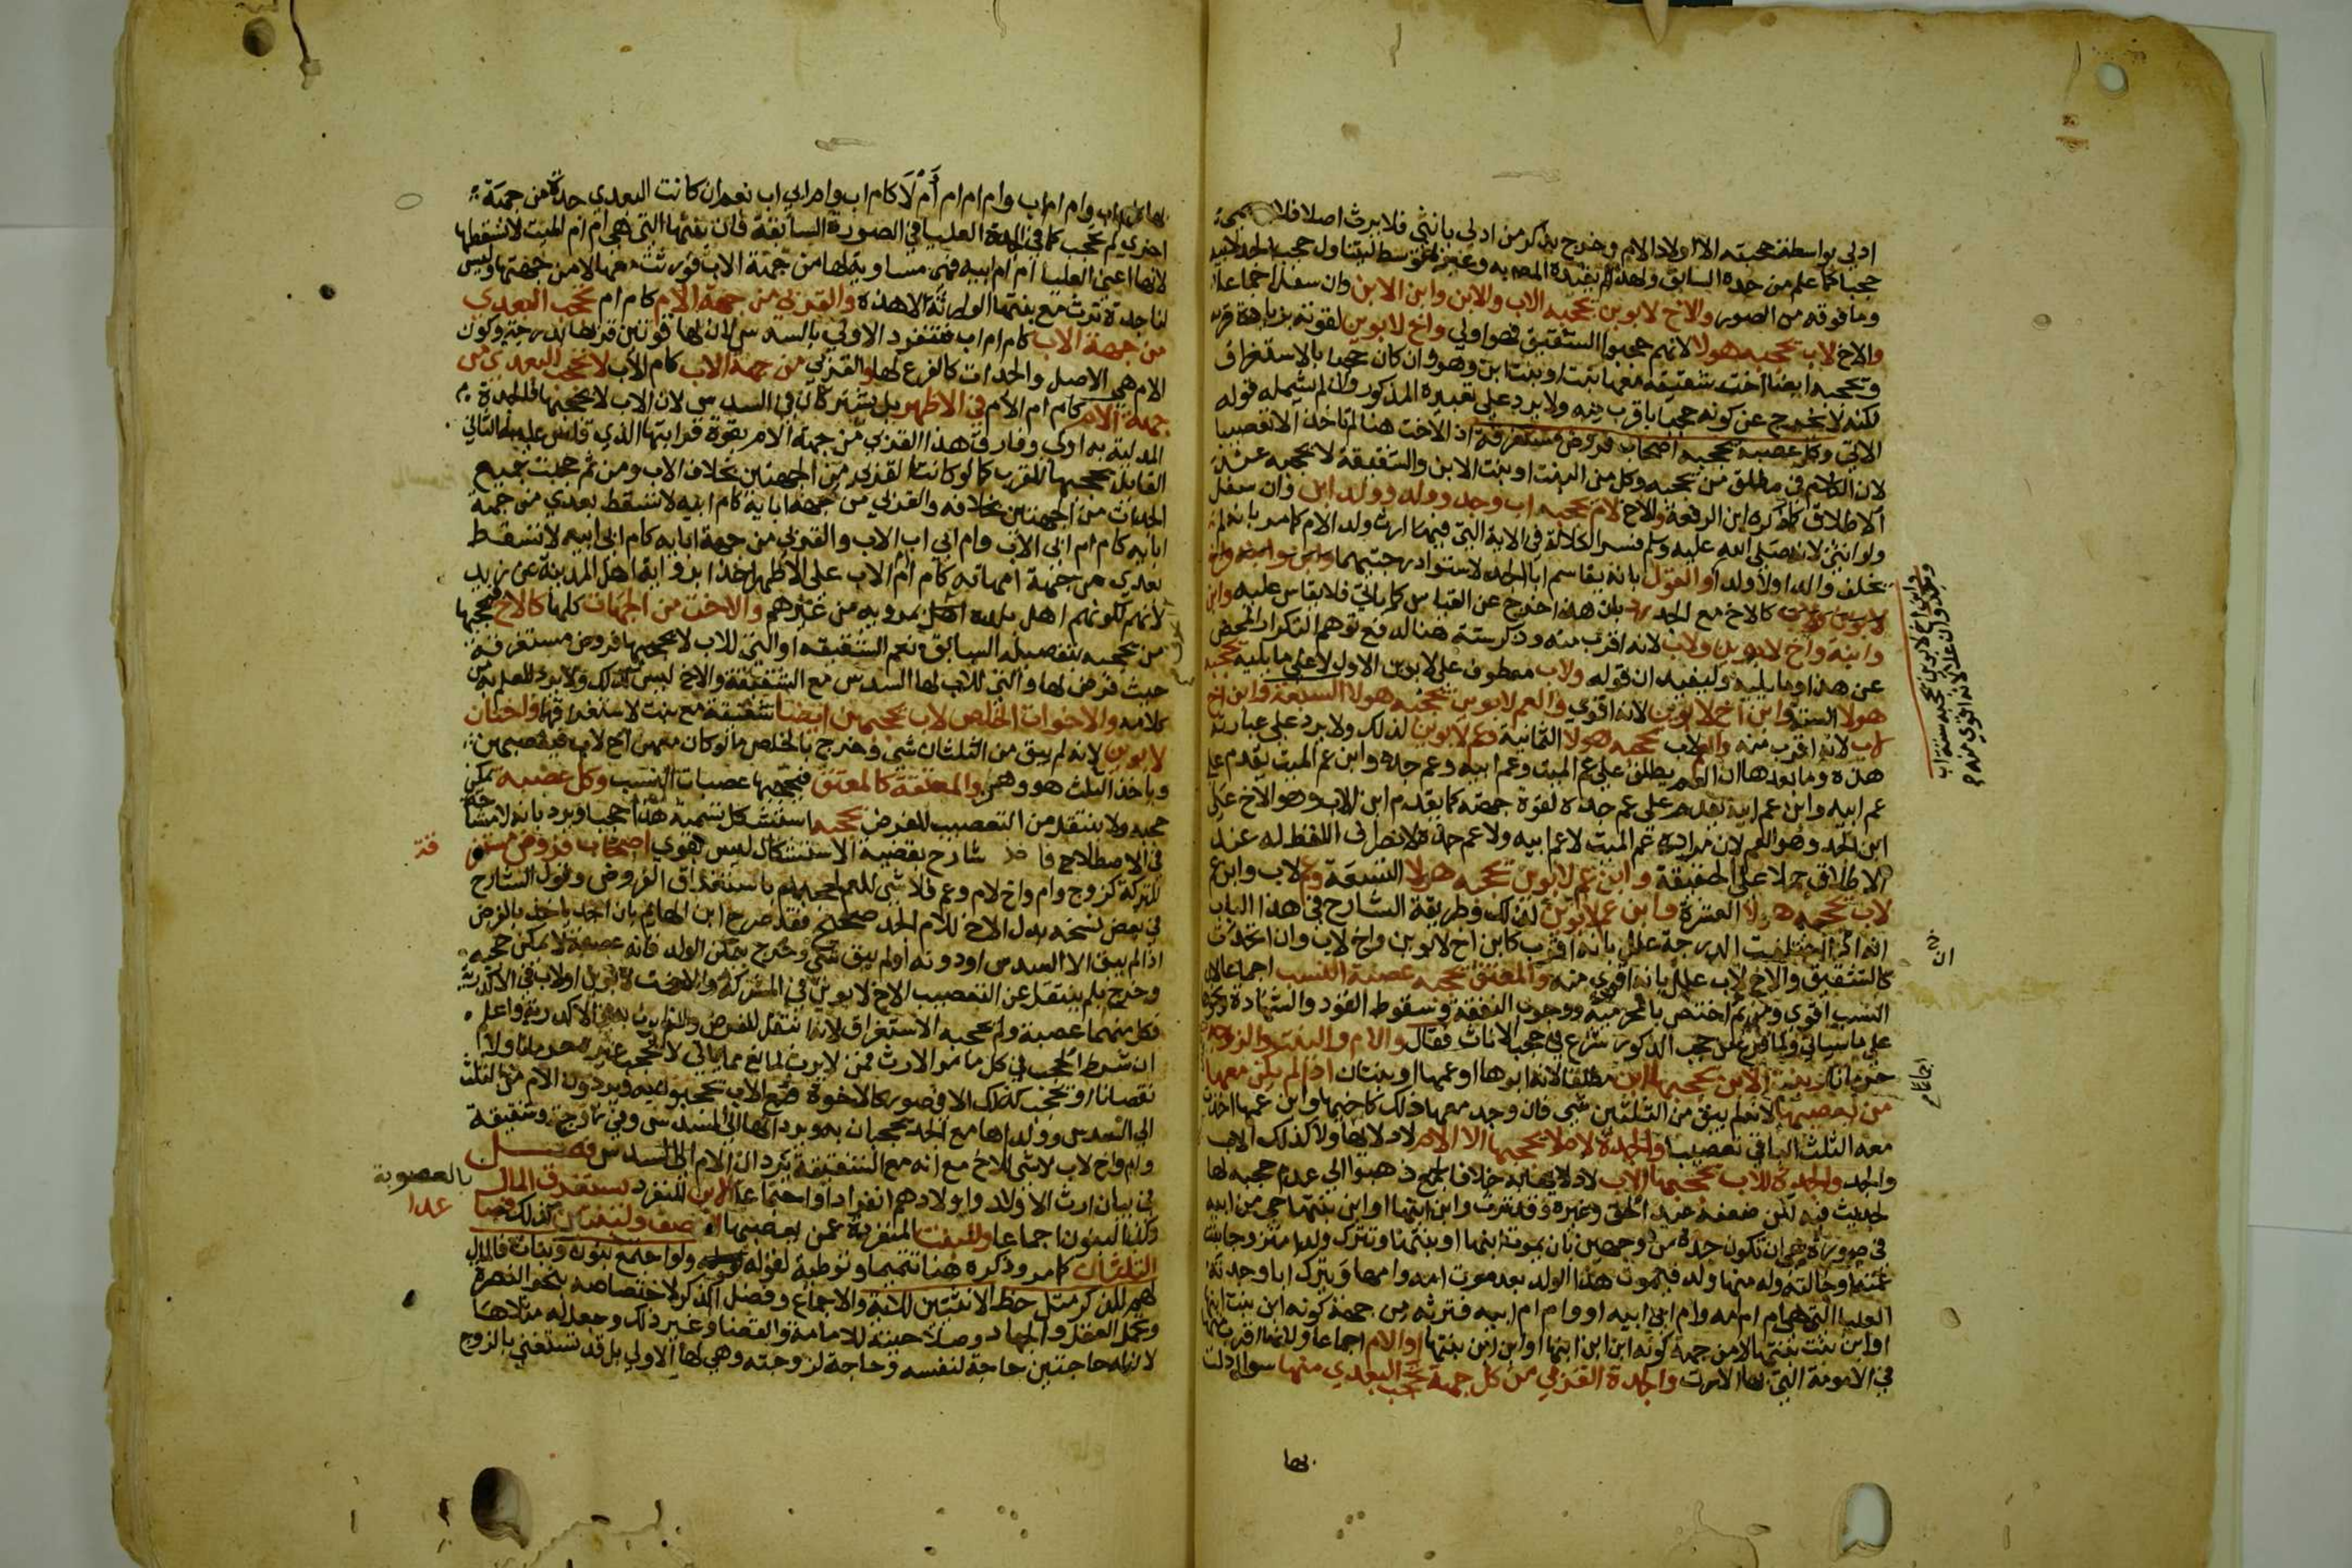 ادلى بواسطة حجبته الا اولاد الام وخرج بذكر من ادلى بانثى فلا يرث اصلا فلا يسمى
حجبا كما علم من حده السابق ولهذا لم يقيده المص به وعبر بمتوسط ليتناول حجب الجد لابيه
وما فوقه من الصور والاخ لابوين يحجبه الاب والابن وابن الابن وان سفل اجماعا
والاخ لاب يحجبه هولا لانهم حجبوا الشقيق فهو اولى واخ لابوين لقوته بزيادة قربه
ويحجبه ايضا اخت شقيقة معها بنت او بنت ابن وهو وان كان حجبا بالاستغراق
لكنه لا يخرج عن كونه حجبا باقرب منه ولا يرد على تعبيره المذكور وان لم يشمله قوله
الاتي وكل عصبة يحجبه اصحاب فروض مستغرقة اذ الاخت هنا لم تاخذ الا تعصيبا
لان الكلام في مطلق من يحجبه وكل من البنت او بنت الابن والشقيقة لا يحجبه عند
الاطلاق كما ذكره ابن الرفعة والاخ لام يحجبه اب وجد وولد وولد ابن وان سفل
ولو انثى لانه صلى الله عليه وسلم فسر الكلالة في الاية التي فيها ارث ولد الام كما مر بانه من لم
يخلف والدا ولا ولدا والقول بانه يقاسم ابا الجد لاستواء درجتيهما وابن
لابوين كالاخ مع الجد رد بان هذا خرج عن القياس كما ياتي فلا يقاس عليه وابن
وابنه واخ لابوين ولاب لانه اقرب منه وذكر ستة هنا له فع توهم التكرار المحض
عن هذا وما يليه وليفيد ان قوله ولاب معطوف على لابوين الاول لا على ما يليه يحجبه
هولا الستة وابن اخ لابوين لانه اقوى والعم لابوين يحجبه هولا السبعة وابن اخ
لاب لانه اقرب منه والعم لاب يحجبه هولا الثمانية وعم لابوين لذلك ولا يرد على عبارته
هذه وما بعدها ان العم يطلق على عم الميت وعم ابيه وعم جده وابن عم الميت يقدم على
عم ابيه وابن عم ابيه يقدم على عم جده لقوة جهته كما يقدم ابن الاب وهو الاخ على
ابن الجد وهو العم لان مراده عم الميت لا عم ابيه ولا عم جده لانصراف اللفظ له عند
الاطلاق حملا على الحقيقة وابن عم لابوين يحجبه هولا التسعة وعم لاب وابن عم
لاب يحجبه هولا العشرة وابن عم لابوين لذلك وطريقة الشارح في هذا الباب
انه اذا اختلفت الدرجة علل بانه اقرب كابن اخ لابوين واخ لاب وان اتحدت
كالشقيق والاخ لاب علل بانه اقوى منه والمعتق يحجبه عصبة النسب اجماعا لان
النسب اقوى ومن ثم اختص بالمحرمية ووجوب النفقة وسقوط القود والشهادة ونحوها
على ما سياتي ولما فرغ من حجب الذكور شرع في حجب الاناث فقال والام والبنت والزوجة
حرمانا وبنت الابن يحجبها ابن مطلقا لانه ابوها او عمها او بنتان اذا لم يكن معها
من يعصبها لانه لم يبق من الثلثين شي فان وجد معها ذلك كاخيها وابن عمها اخذت
معه الثلث الباقي تعصيبا والجدة لام لا يحجبها الا الام لادلائها ولا كذلك الاب
والجد والجدة للاب يحجبها الاب لادلائها به خلافا لجمع ذهبوا الى عدم حجبه لها
لحديث فيه لكن ضعفه عبد الحق وغيره وقد ترث وابن ابنها او ابن بنتها حي من ابيه
في صورة هي ان تكون جدة من وجهين بان يموت ابنها او بنتها وتترك ولدا متزوجا بنت
عمته او خالته وله منها ولد فيموت هذا الولد بعد موت امه وامها ويترك ابا وجدته
العليا التي هي ام ام امه وام ابي ابيه او وام ام ابيه فترثه من جهة كونه ابن بنت ابنها
او ابن بنت بنتها لا من جهة كونه ابن ابن ابنها او ابن ابن بنتها او الام اجماعا ولانها اقرب منها
في الامومة التي بها الارث والجدة القربى من كل جهة تحجب البعدى منها سواء ادلت
بها
وابن الاخ لابوين يحجبه ستة اب
وجد وان علا لانه اقوى منه
اجماعا
بها كام اب وام ام اب وام ام ام ام لا كام اب وام ابي اب نعم ان كانت البعدى جدة من جهة
اخرى لم تحجب كما في الجدة العليا في الصورة السابقة فان بنتها التي هي ام ام الميت لا تسقطها
لانها اعني العليا ام ام ابيه فهي مساوية لها من جهة الاب فورثت معها لا من جهتها وليس
لنا جدة ترث مع بنتها الوارثة الا هذه والقربى من جهة الام كام ام تحجب البعدى
من جهة الاب كام ام اب فتنفرد الاولى بالسدس لان لها قوتين قربها بدرجة وكون
الام هي الاصل والجدات كالفرع لها والقربى من جهة الاب كام الاب لا تحجب البعدى من
جهة الام كام ام الام في الاظهر بل يشتركان في السدس لان الاب لا يحجبها فالجدة
المدلية به اولى وفارق هذا القربى من جهة الام بقوة قرابتها الذي قاس عليه الثاني
القايل بحجبها للقرب كما لو كانت القربى من الجهتين بخلاف الاب ومن ثم حجبت جميع
الجدات من الجهتين بخلافه والقربى من جهة ابايه كام ابيه لا تسقط بعدى من جهة
ابايه كام ام ابي الاب وام ابي اب الاب والقربى من جهة ابايه كام ابي ابيه لا تسقط
بعدى من جهة امهاته كام ام ام الاب على الاظهر اخذا برواية اهل المدينة عن زيد
لانهم لكونهم اهل بلده اعلم بمرويه من غيرهم والاخت من الجهات كلها كالاخ فيحجبها
من يحجبه بتفصيله السابق نعم الشقيقة او التي للاب لا يحجبها فروض مستغرقة
حيث فرض لها والتي للاب لها السدس مع الشقيقة والاخ ليس كذلك ولا يرد للعلم به من
كلامه والاخوات الخلص لاب يحجبهن ايضا شقيقة مع بنت لاستغراقها واختان
لابوين لانه لم يبق من الثلثان شي وخرج بالخلص ما لو كان معهن اخ لاب فيعصبهن
وياخذ الثلث هو وهن والمعتقة كالمعتق فيحجبها عصبات النسب وكل عصبة يمكن
حجبه ولا ينتقل من التعصيب للفرض يحجبه استشكل تسمية هذا حجبا ويرد بانه لا مشاحة
في الاصطلاح شارح بقضية الاستشكال ليس بقوي اصحاب فروض مستغرقة
للتركة كزوج وام واخ لام وعم فلا شي للعم لحجبه باستغراق الفروض وقول الشارح
في بعض نسخه بدل الاخ للام الجد صحيح فقد صرح ابن الهايم بان الجد ياخذ بالفرض
اذا لم يبق الا السدس او دونه او لم يبق شي وخرج بيمكن الولد فانه عصبة لا يمكن حجبه
وخرج بلم ينتقل عن التعصيب الاخ لابوين في المشركة والاخت لابوين او لاب في الاكدرية
فكل منهما عصبة ولم يحجبه الاستغراق لانه انتقل للفرض وللتعصيب في الاكدرية واعلم
ان شرط الحجب في كل ما مر الارث فمن لا يرث لمانع مما ياتي لا يحجب غيره حرمانا ولا
نقصانا او يحجب كذلك الا في صور كالاخوة مع الاب يحجبون به ويردون الام من الثلث
الى السدس وولداها مع الجد يحجبان به ويردانها الى السدس وفي زوج وشقيقة
وام واخ لاب لا شي للاخ مع انه مع الشقيقة يردان الام الى السدس فصل
في بيان ارث الاولاد واولادهم انفرادا واجتماعا الابن المنفرد يستغرق المال
بالعصوبة
وكذا البنون اجماعا وللبنت المنفردة عمن يعصبها النصف ولبنتين كذلك فصاعدا
الثلثان كما مر وذكره هنا تتميما وتوطية لقوله ولو اجتمع بنون وبنات فالمال
لهم للذكر مثل حظ الانثيين للاية والاجماع وفضل الذكر لاختصاصه بنحو النصرة
وتحمل العقل والجهاد وصلاحيته للامامة والقضا وغير ذلك وجعل له مثلاها
لان له حاجتين حاجة لنفسه وحاجة لزوجته وهي لها الاولى بل قد تستغني بالزوج